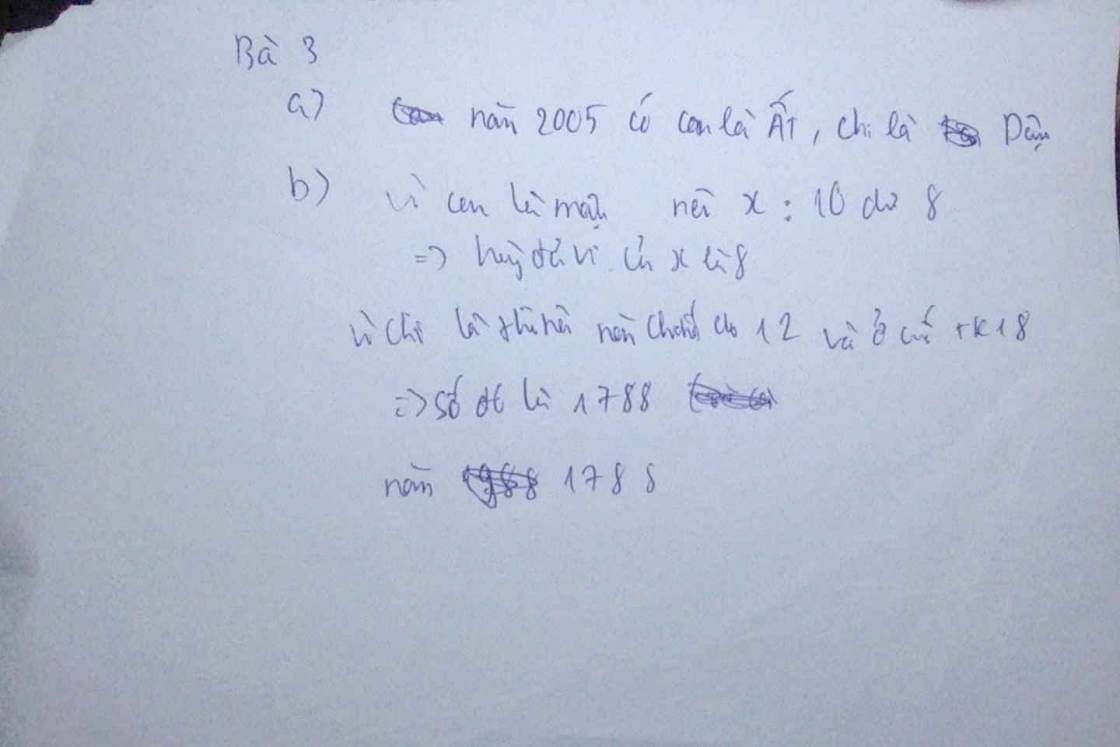 Bà 3
a) năm 2005 có can là Ất, chi là Dậu
b) vì can là mậu nên x : 10 dư 8
=> hàng đơn vị của x là 8
vì chi là thân nên chia hết cho 12 và ở cuối tk 18
=> số đó là 1788
năm 1788